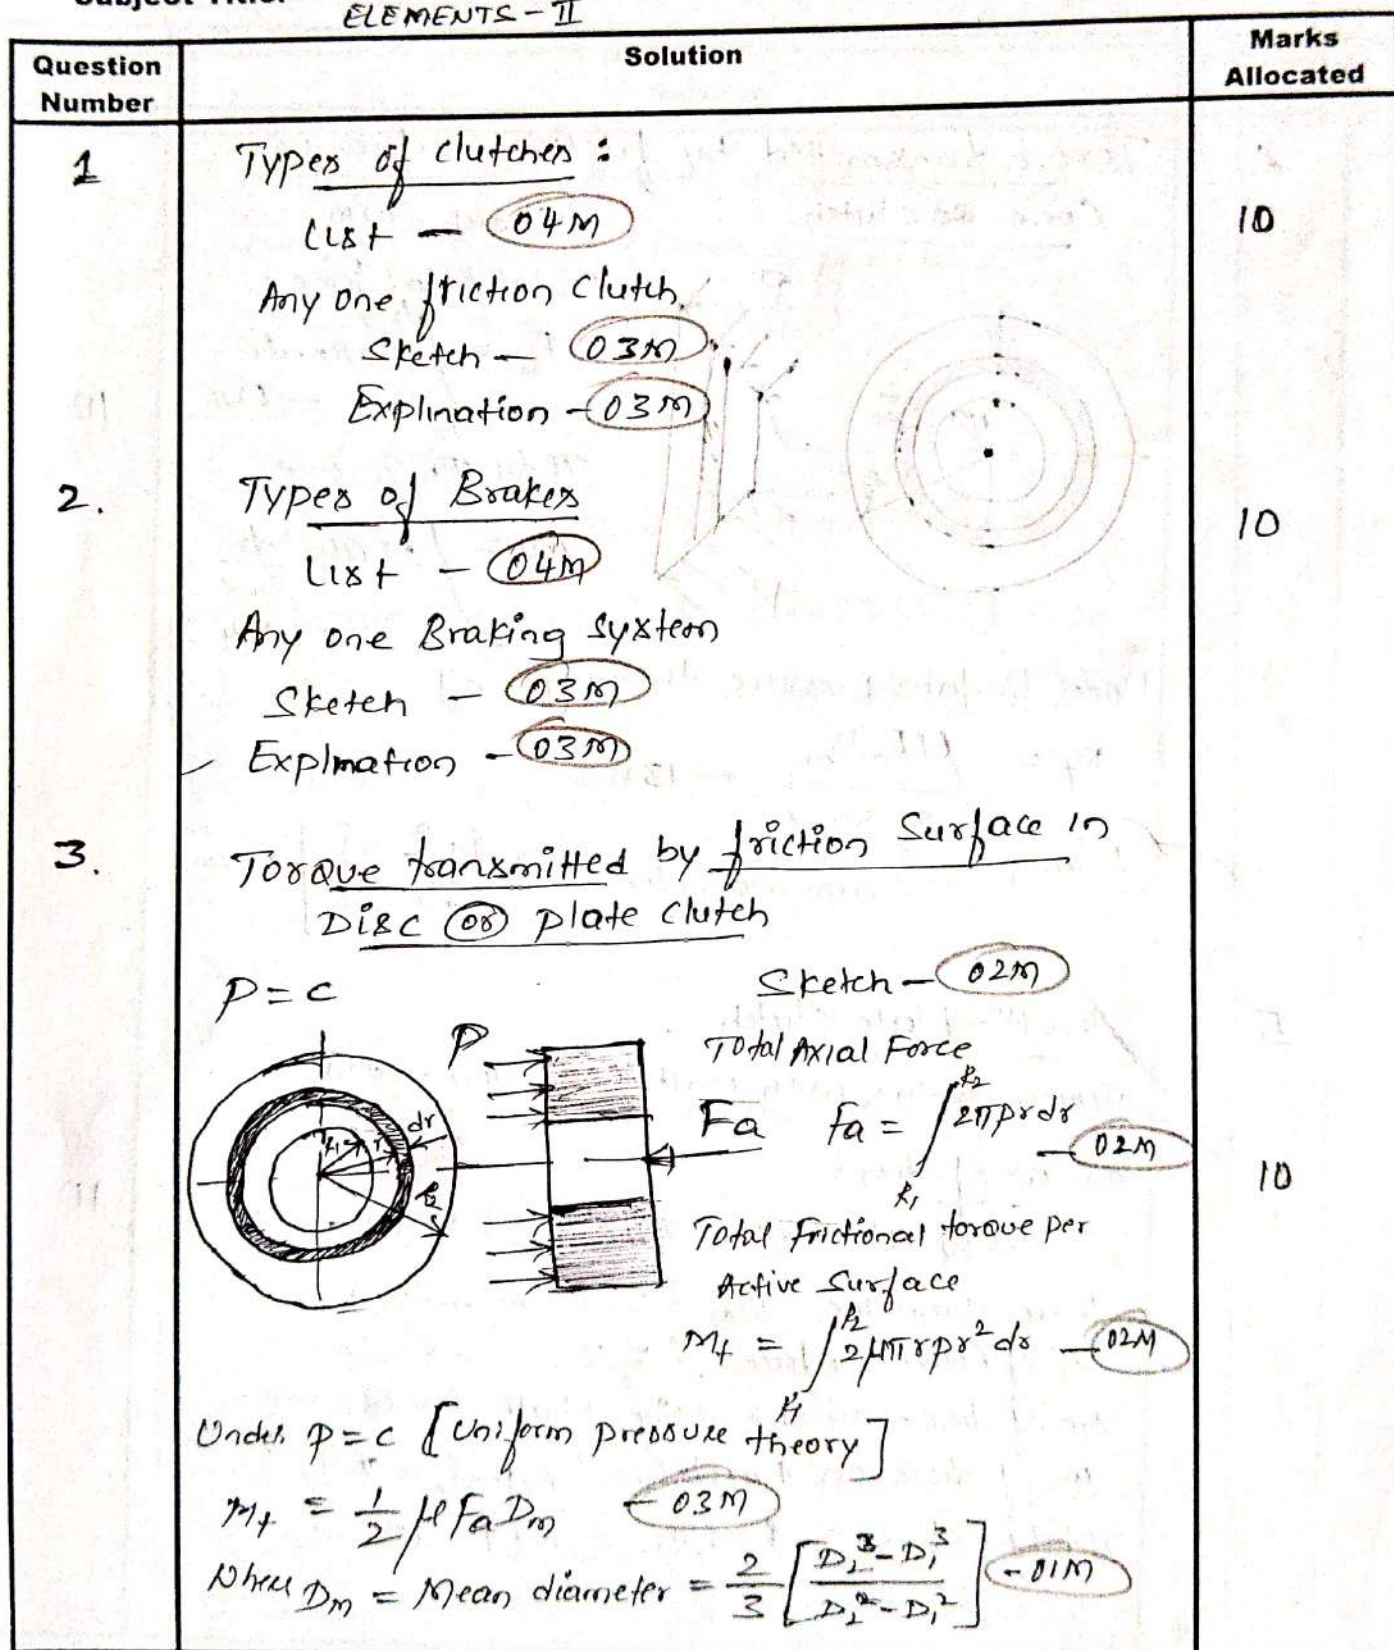 ELEMENTS - II
Question Number
Solution
Marks Allocated
1
Types of clutches :
List - 04M
10
Any one friction Clutch.
Sketch - 03M
Explination - 03M
2.
Types of Brakes
10
List - 04M
Any one Braking system
Sketch - 03M
Explination - 03M
3.
Torque transmitted by friction Surface in
Disc or plate clutch
P = c
Sketch - 02M
P
Total Axial Force
R1 r dr
R2
Fa
Fa = ∫R1^R2 2πprdr - 02M
10
Total Frictional torque per
Active Surface
Mt = ∫R1^R2 2μπrpr² dr - 02M
Under P = c [Uniform pressure theory]
Mt = 1/2 μFaDm - 03M
Where Dm = Mean diameter = 2/3 [D2³ - D1³ / D2² - D1²] - 01M